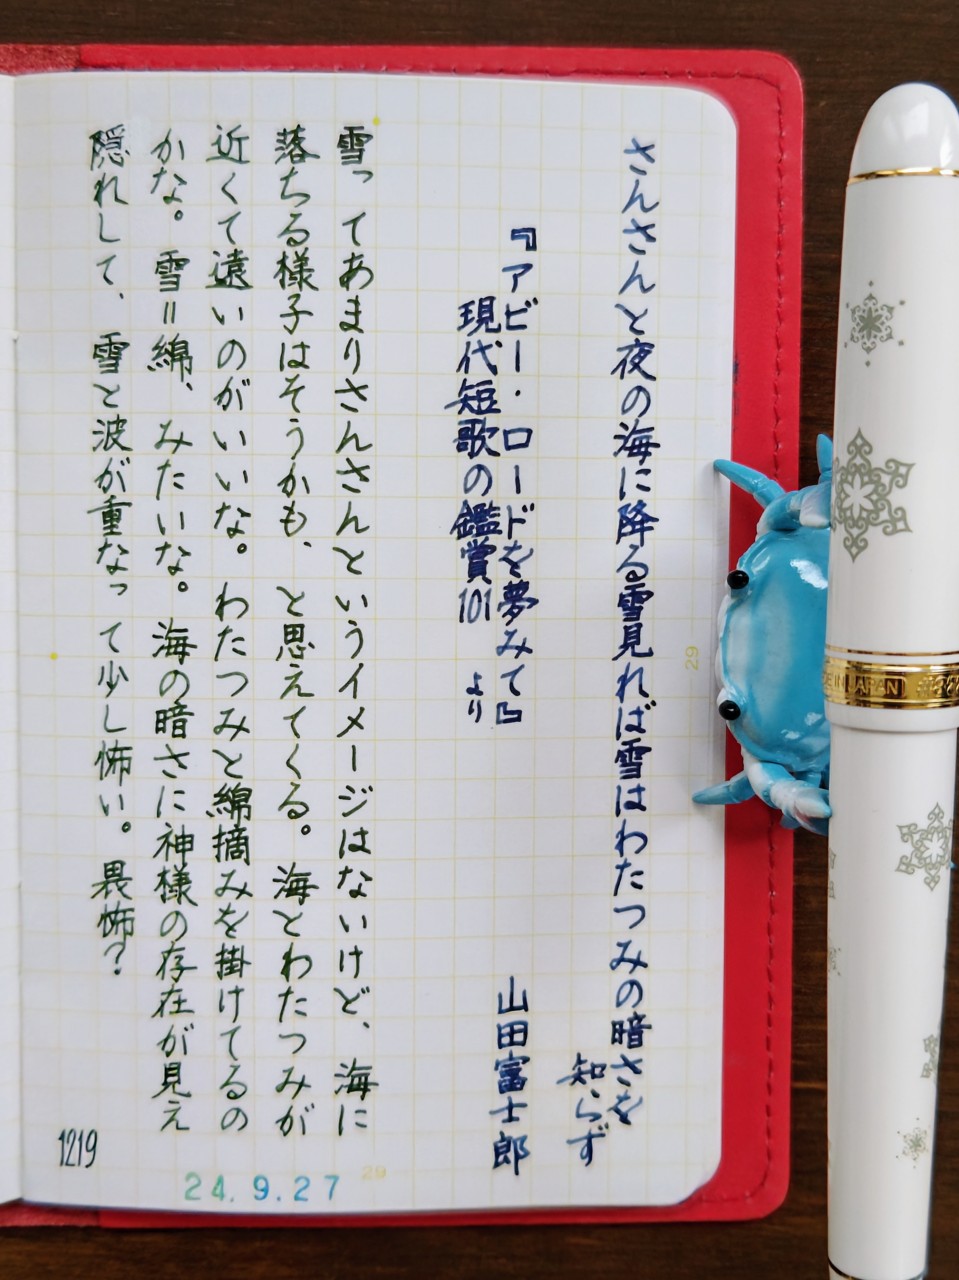 さんさんと夜の海に降る雪見れば雪はわたつみの暗さを
知らず
山田富士郎
『アビー・ロードを夢みて』
現代短歌の鑑賞101 より
雪ってあまりさんさんというイメージはないけど、海に
落ちる様子はそうかも、と思えてくる。海とわたつみが
近くて遠いのがいいな。わたつみと綿摘みを掛けてるの
かな。雪=綿、みたいな。海の暗さに神様の存在が見え
隠れして、雪と波が重なって少し怖い。畏怖?
1219
24.9.27
29
29
IN JAPAN